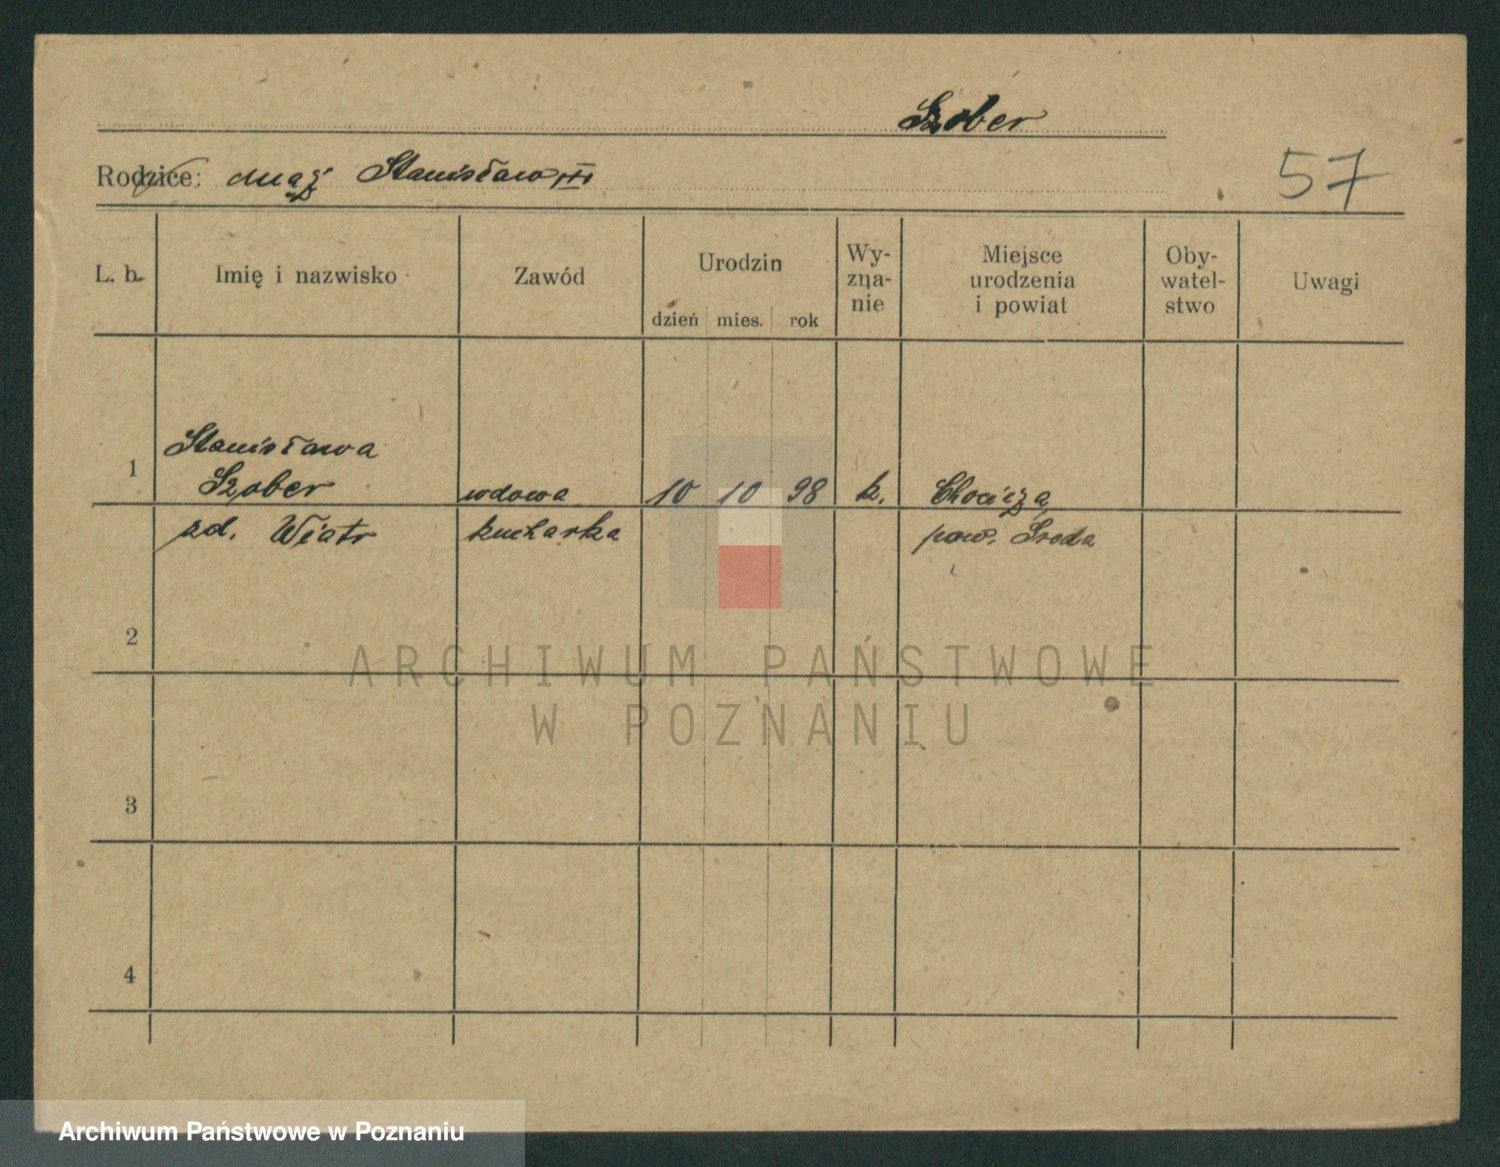 Szober
Rodzice: mąż Stanisław
57
L. b. Imię i nazwisko Zawód Urodzin dzień mies. rok Wy-zna-nie Miejsce urodzenia i powiat Oby-watel-stwo Uwagi
Stanisława
1 Szober wdowa 10 10 98 k. Chocicza
zd. Wiatr kucharka pow. Środa
2
ARCHIWUM PAŃSTWOWE
W POZNANIU
3
4
Archiwum Państwowe w Poznaniu